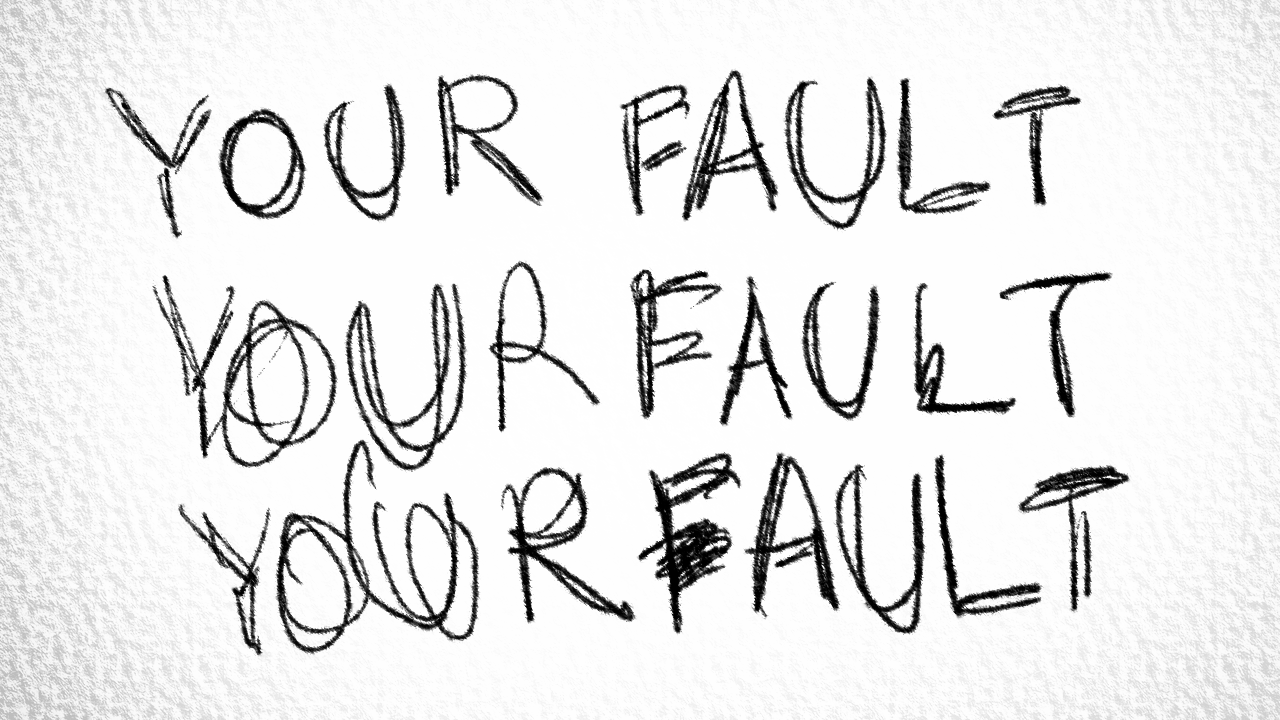 YOUR FAULT
YOUR FAULT
YOUR FAULT